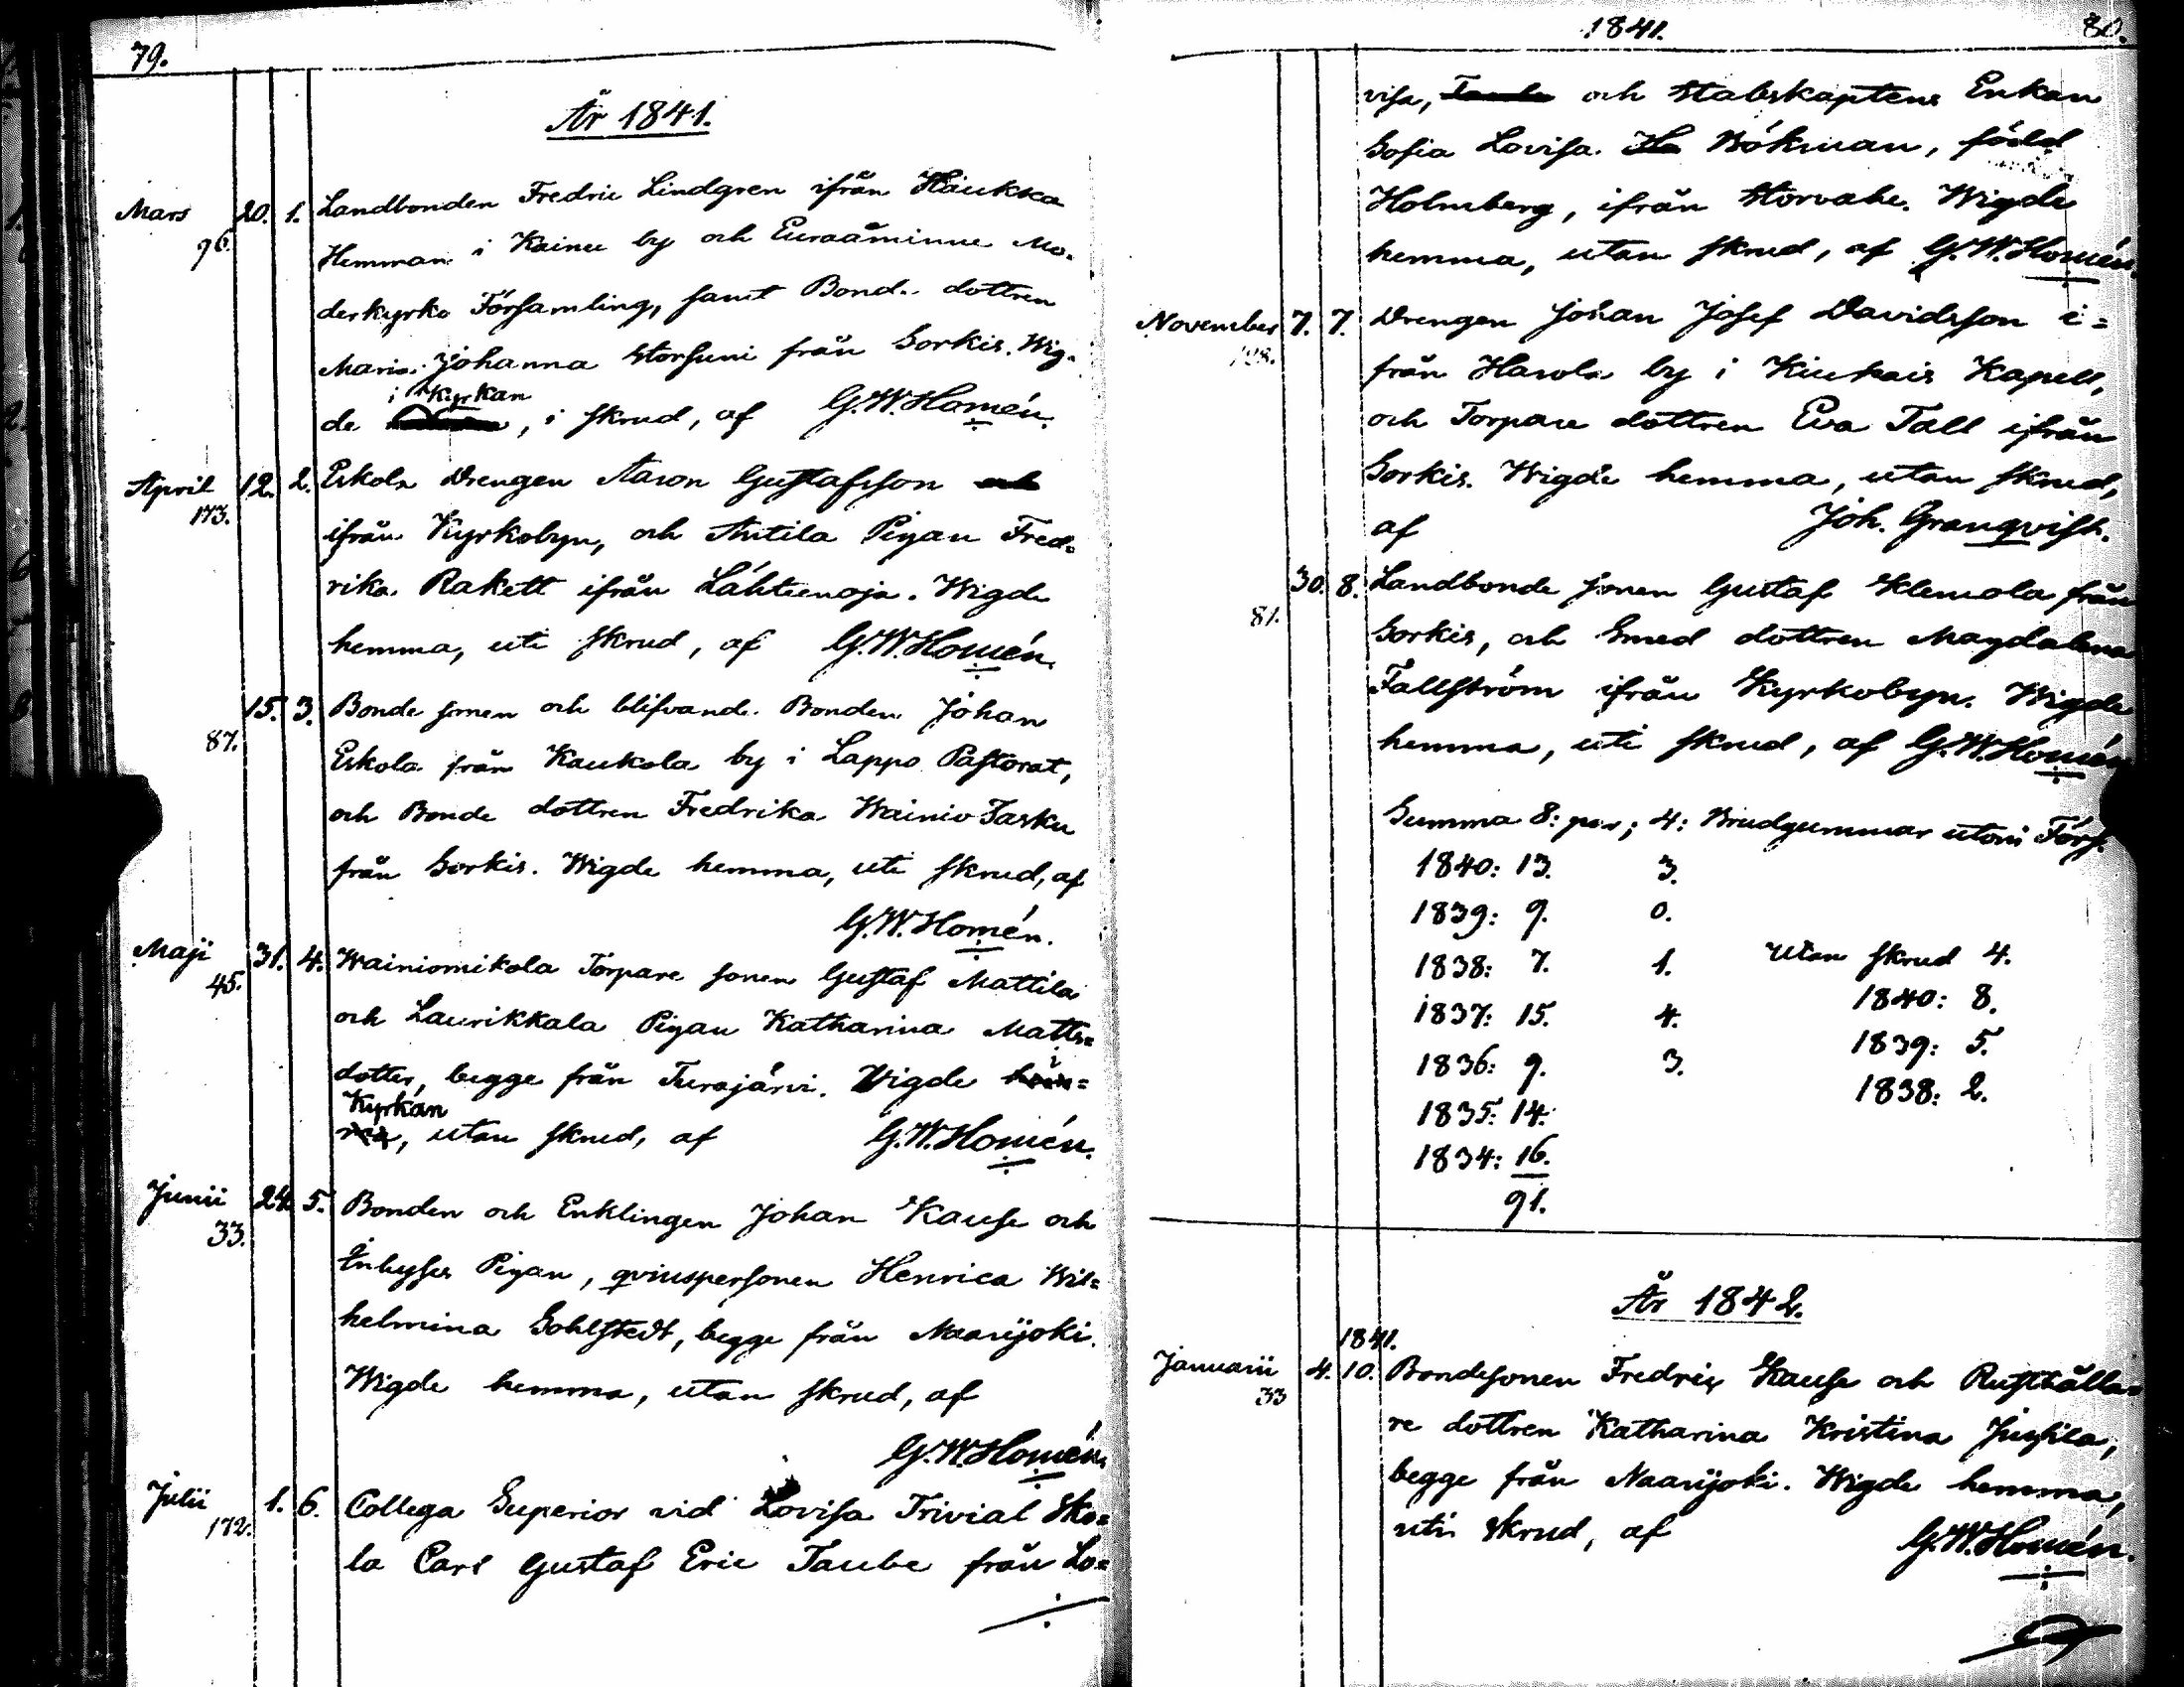 79.
År 1841.
Mars 20. 1. Landbonden Fredric Lindgren ifrån Haukka
96. Hemman i Kainu by och Euraåminne Mo-
derkyrko Församling, samt Bonde dottren
Maria Johanna Storsuni från Sorkis. Wig-
i Kyrkan
de , i skrud, af G.W.Homén.
April 12. 2. Eskola Drengen Aaron Gustafsson och
173. ifrån Kyrkobyn, och Antila Pigan Fred=
rika Rakett ifrån Lähteenoja. Wigde
hemma, uti skrud, af G.W.Homén.
15. 3. Bonde sonen och blifvande Bonden Johan
87. Eskola från Kaukola by i Lappo Pastorat,
och Bonde dottren Fredrika Wainio Tasku
från Sorkis. Wigde hemma, uti skrud, af
G.W.Homén.
Maji 31. 4. Wainiomikola Torpare sonen Gustaf Mattila
45. och Laurikkala Pigan Katharina Matts=
i
dotter, begge från Turajärvi. Wigde hem=
Kyrkan
ma, utan skrud, af G.W.Homén.
Junii 24. 5. Bonden och Enklingen Johan Kause och
33. Inhyses Pigan, qvinspersonen Henrica Wil=
helmina Sohlstedt, begge från Naarijoki.
Wigde hemma, utan skrud, af
G.W.Homén.
Julii 1. 6. Collega Superior vid Lovisa Trivial Sko=
172. la Carl Gustaf Eric Taube från Lo=
1841. 80.
visa, Taube och Stabskaptens Enkan
Sofia Lovisa Ho Bökman, född
Holmberg, ifrån Storvahe. Wigde
hemma, utan skrud, af G.W.Homén.
November 7. 7. Drengen Johan Josef Davidsson i=
från Harola by i Kiukais Kapell,
och Torpare dottren Eva Tall ifrån
Sorkis. Wigde hemma, utan skrud,
af Joh. Granqvist.
30. 8. Landbonde sonen Gustaf Klemola från
81. Sorkis, och Smed dottren Magdalena
Fallström ifrån Kyrkobyn. Wigde
hemma, uti skrud, af G.W.Homén
Summa 8: par; 4: Brudgummar utom Förs.
1840: 13. 3.
1839: 9. 0.
1838: 7. 1. Utan skrud 4.
1837: 15. 4. 1840: 8.
1836: 9. 3. 1839: 5.
1835: 14. 1838: 2.
1834: 16.
91.
År 1842.
1841.
Januarii 4. 10. Bondesonen Fredric Kause och Rusthålla=
33 re dottren Katharina Kristina Jussila,
begge från Naarijoki. Wigde hemma,
uti skrud, af G.W.Homén.